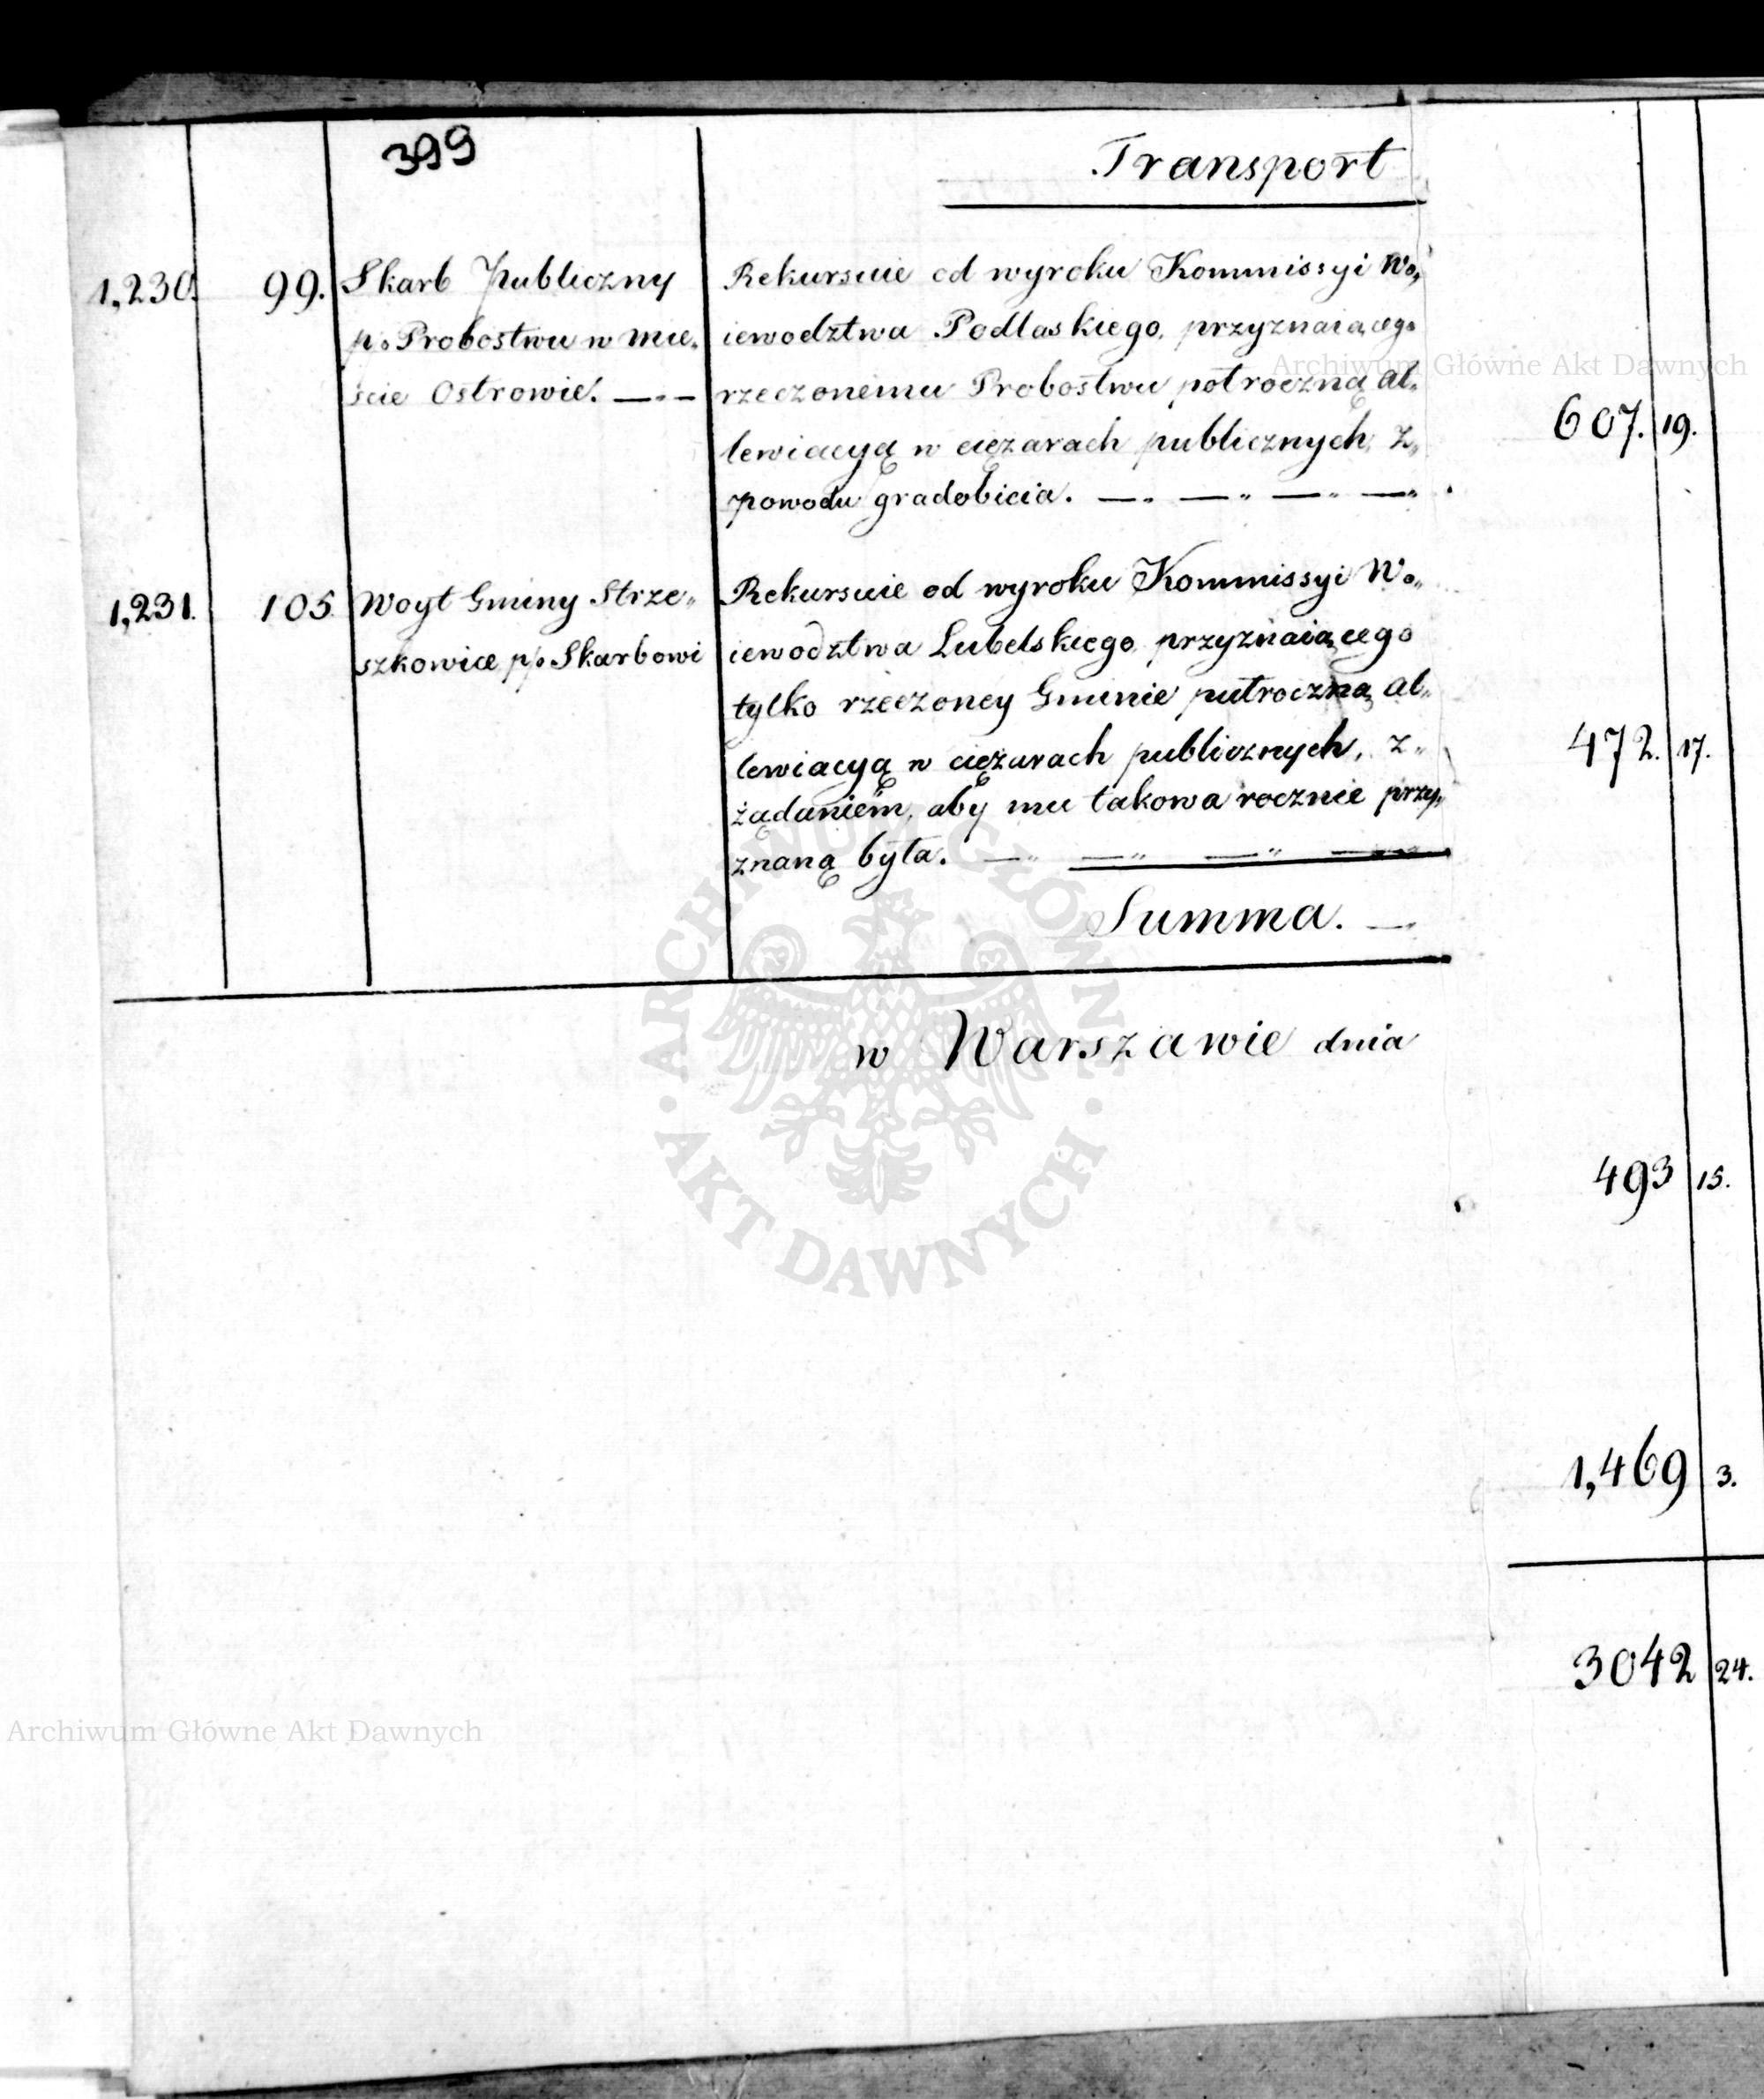 399
Transport
1,230. 99. Skarb Publiczny Rekursuie od wyroku Kommissyi Wo„
p/o Probostwu w mie„ iewodztwa Podlaskiego, przyznaiącego
ście Ostrowie. rzeczonemu Probostwu połroczną al„
lewiacyą w cięzarach publicznych, z„
powodu gradobicia.
607. 19.
1,231. 105 Woyt Gminy Strze„ Rekursuie od wyroku Kommissyi Wo„
szkowice p/o Skarbowi iewodztwa Lubelskiego, przyznaiącego
tylko rzeczoney Gminie pułroczną al„
lewiacyą w cięzarach publicznych, z„
żądaniem, aby mu takowa rocznie przy„
znaną była.
472. 17.
Summa.
w Warszawie dnia
493 15.
1,469 3.
3042 24.
Archiwum Główne Akt Dawnych
ARCHIWUM GŁÓWNE
AKT DAWNYCH
Archiwum Główne Akt Dawnych